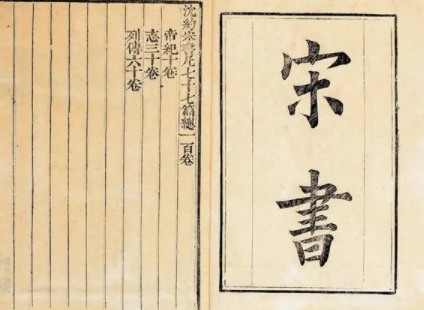 宋書
沈約宋書凡七十七篇總一百卷
帝紀十卷
志三十卷
列傳六十卷